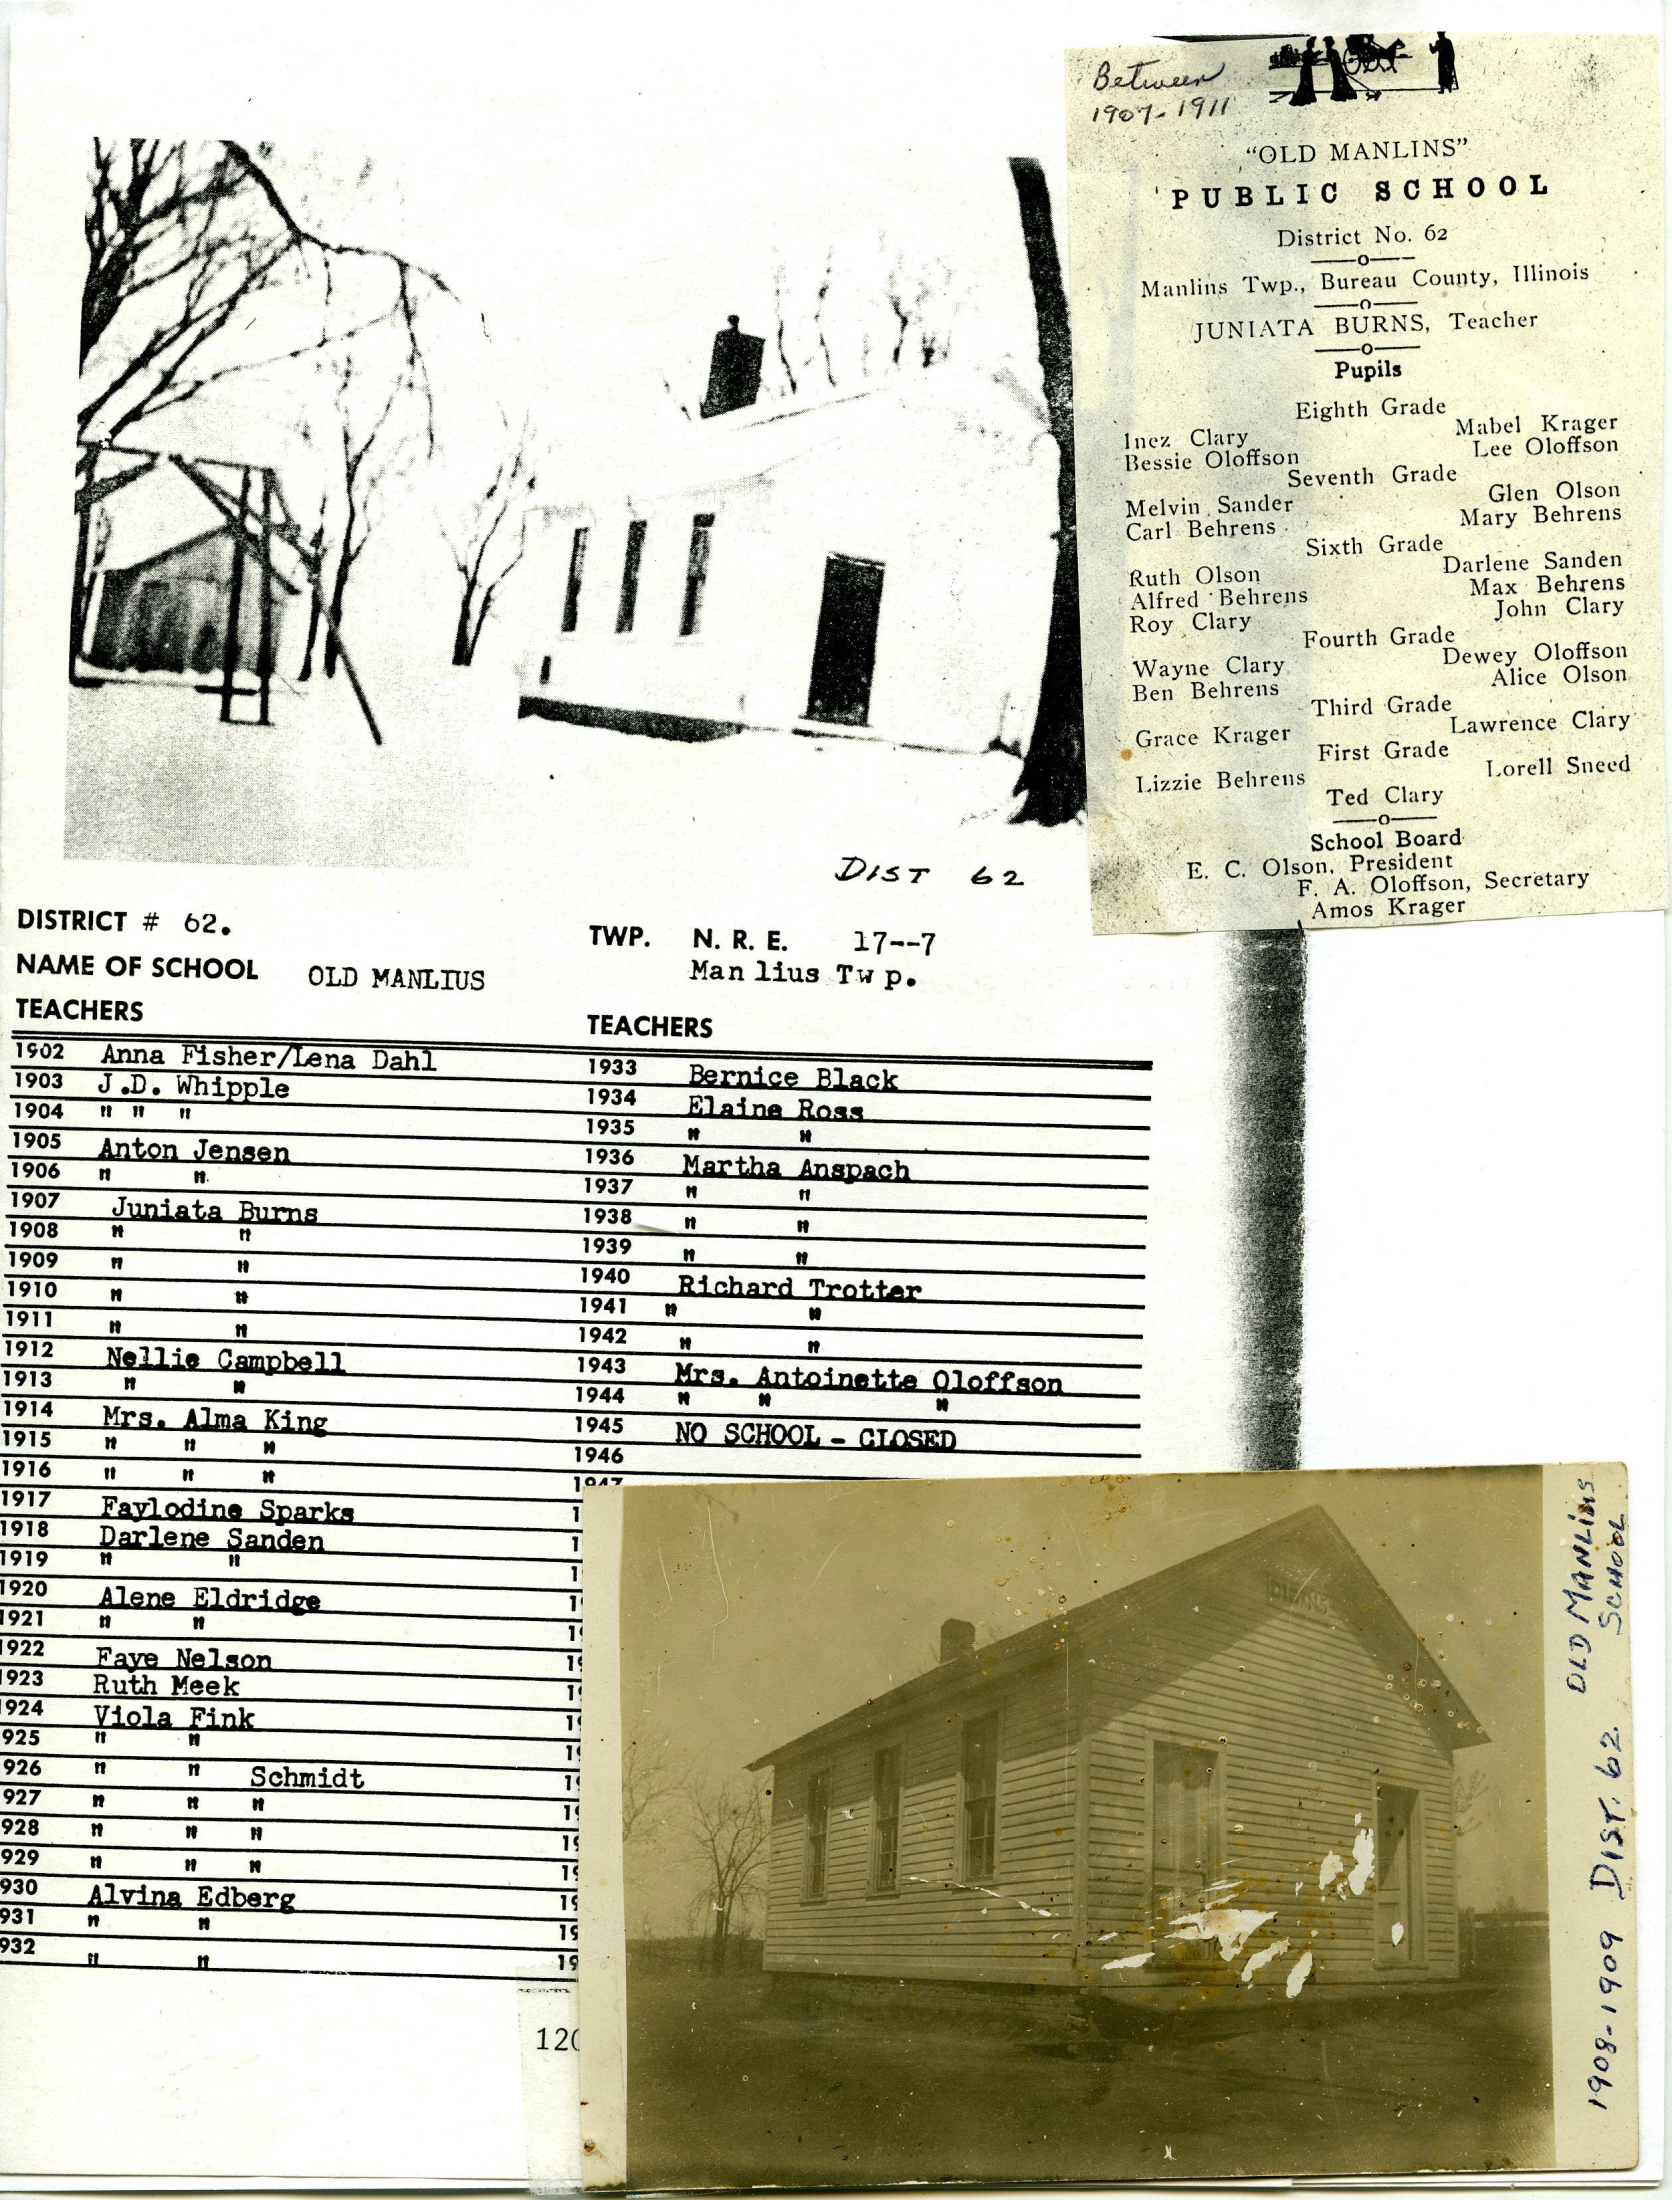 Between
1907-1911
"OLD MANLINS"
PUBLIC SCHOOL
District No. 62
Manlins Twp., Bureau County, Illinois
JUNIATA BURNS, Teacher
Pupils
Eighth Grade
Inez Clary Mabel Krager
Bessie Oloffson Lee Oloffson
Seventh Grade
Melvin Sander Glen Olson
Carl Behrens Mary Behrens
Sixth Grade
Ruth Olson Darlene Sanden
Alfred Behrens Max Behrens
Roy Clary John Clary
Fourth Grade
Wayne Clary Dewey Oloffson
Ben Behrens Alice Olson
Third Grade
Grace Krager Lawrence Clary
First Grade
Lizzie Behrens Lorell Sneed
Ted Clary
School Board
E. C. Olson, President
F. A. Oloffson, Secretary
Amos Krager
DIST 62
DISTRICT # 62.
NAME OF SCHOOL OLD MANLIUS
TWP. N. R. E. 17--7
Manlius Twp.
TEACHERS
1902 Anna Fisher/Lena Dahl
1903 J.D. Whipple
1904 " " "
1905 Anton Jensen
1906 " "
1907 Juniata Burns
1908 " "
1909 " "
1910 " "
1911 " "
1912 Nellie Campbell
1913 " "
1914 Mrs. Alma King
1915 " " "
1916 " " "
1917 Faylodine Sparks
1918 Darlene Sanden
1919 " "
1920 Alene Eldridge
1921 " "
1922 Faye Nelson
1923 Ruth Meek
1924 Viola Fink
925 " "
926 " " Schmidt
927 " " "
928 " " "
929 " " "
930 Alvina Edberg
931 " "
932 " "
TEACHERS
1933 Bernice Black
1934 Elaine Ross
1935 " "
1936 Martha Anspach
1937 " "
1938 " "
1939 " "
1940 Richard Trotter
1941 " "
1942 " "
1943 Mrs. Antoinette Oloffson
1944 " " "
1945 NO SCHOOL - CLOSED
1946
1947
120
1908-1909 DIST. 62. OLD MANLIUS
SCHOOL